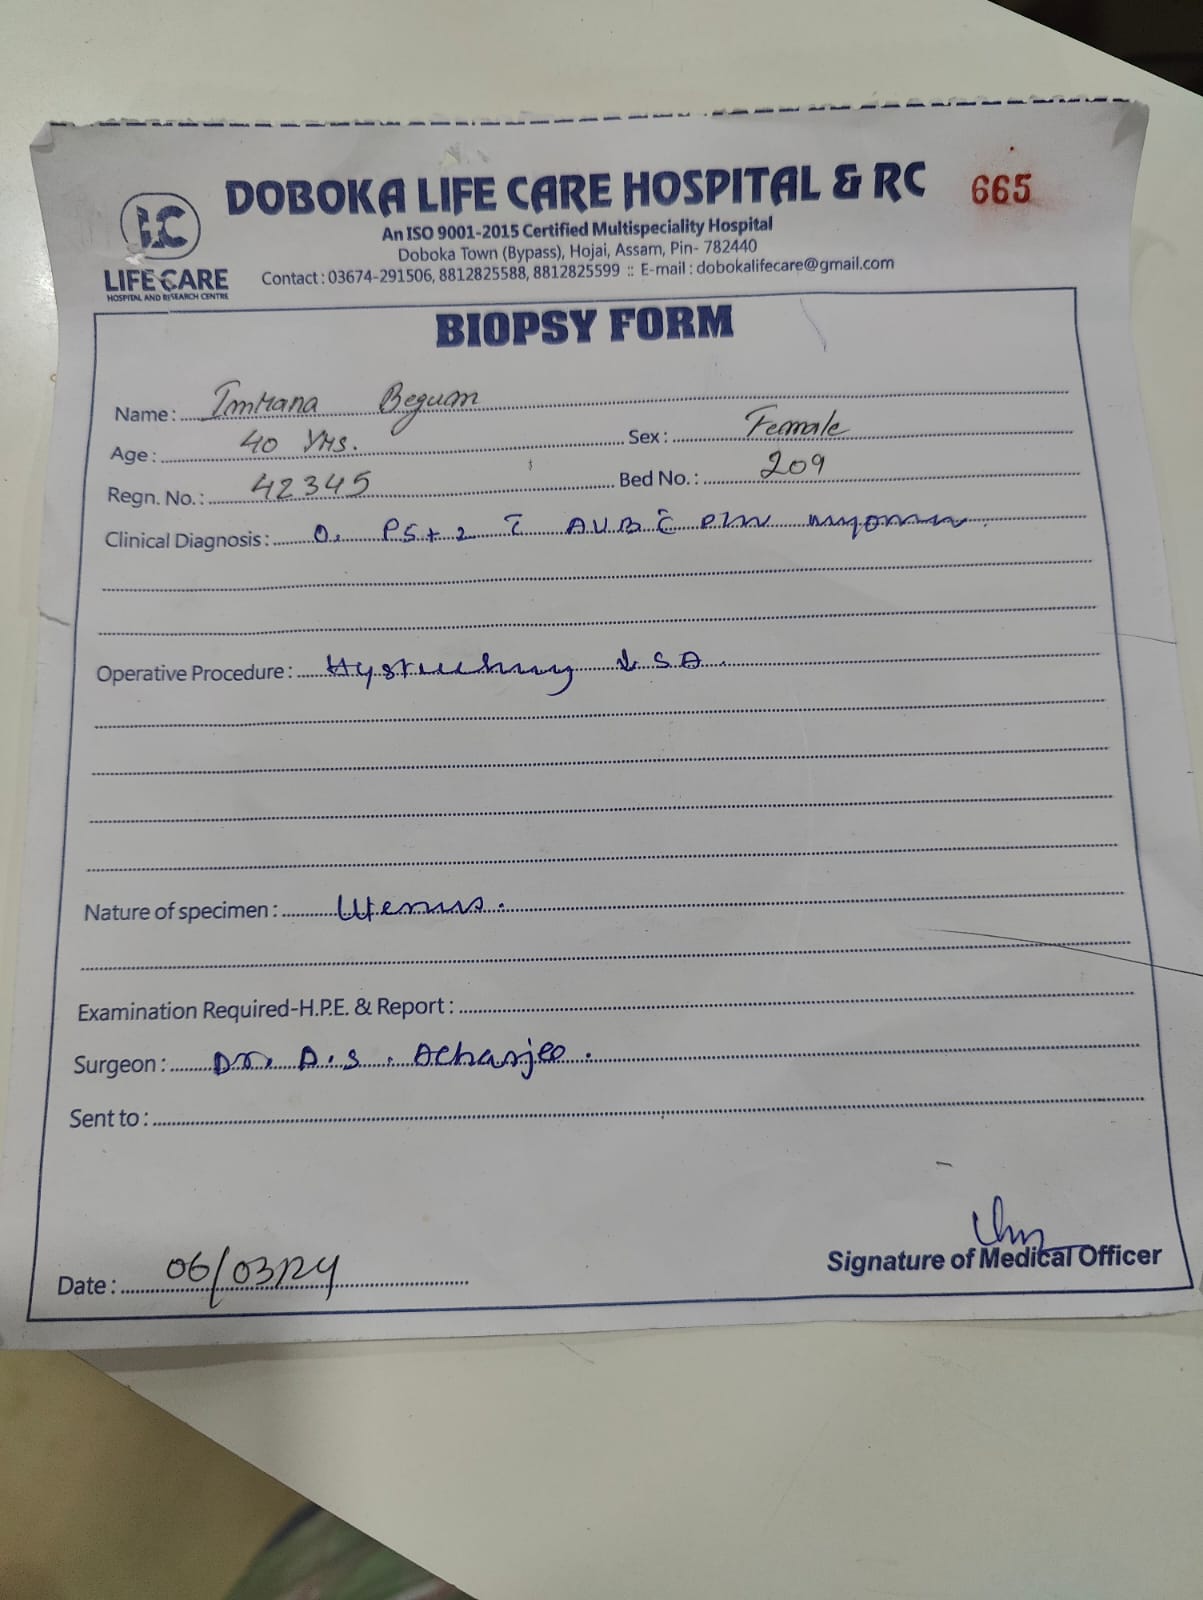 DOBOKA LIFE CARE HOSPITAL & RC 665
An ISO 9001-2015 Certified Multispeciality Hospital
Doboka Town (Bypass), Hojai, Assam, Pin- 782440
Contact : 03674-291506, 8812825588, 8812825599 :: E-mail : dobokalifecare@gmail.com
LIFE CARE
HOSPITAL AND RESEARCH CENTRE
BIOPSY FORM
Name : Imrana Begum
Age : 40 Yrs. Sex : Female
Regn. No. : 42345 Bed No. : 209
Clinical Diagnosis : P5+2 c̄ AUB c̄
Operative Procedure :
Nature of specimen : Uterus.
Examination Required-H.P.E. & Report :
Surgeon : Dr. A.S. Acharjee.
Sent to :
Signature of Medical Officer
Date : 06/03/24